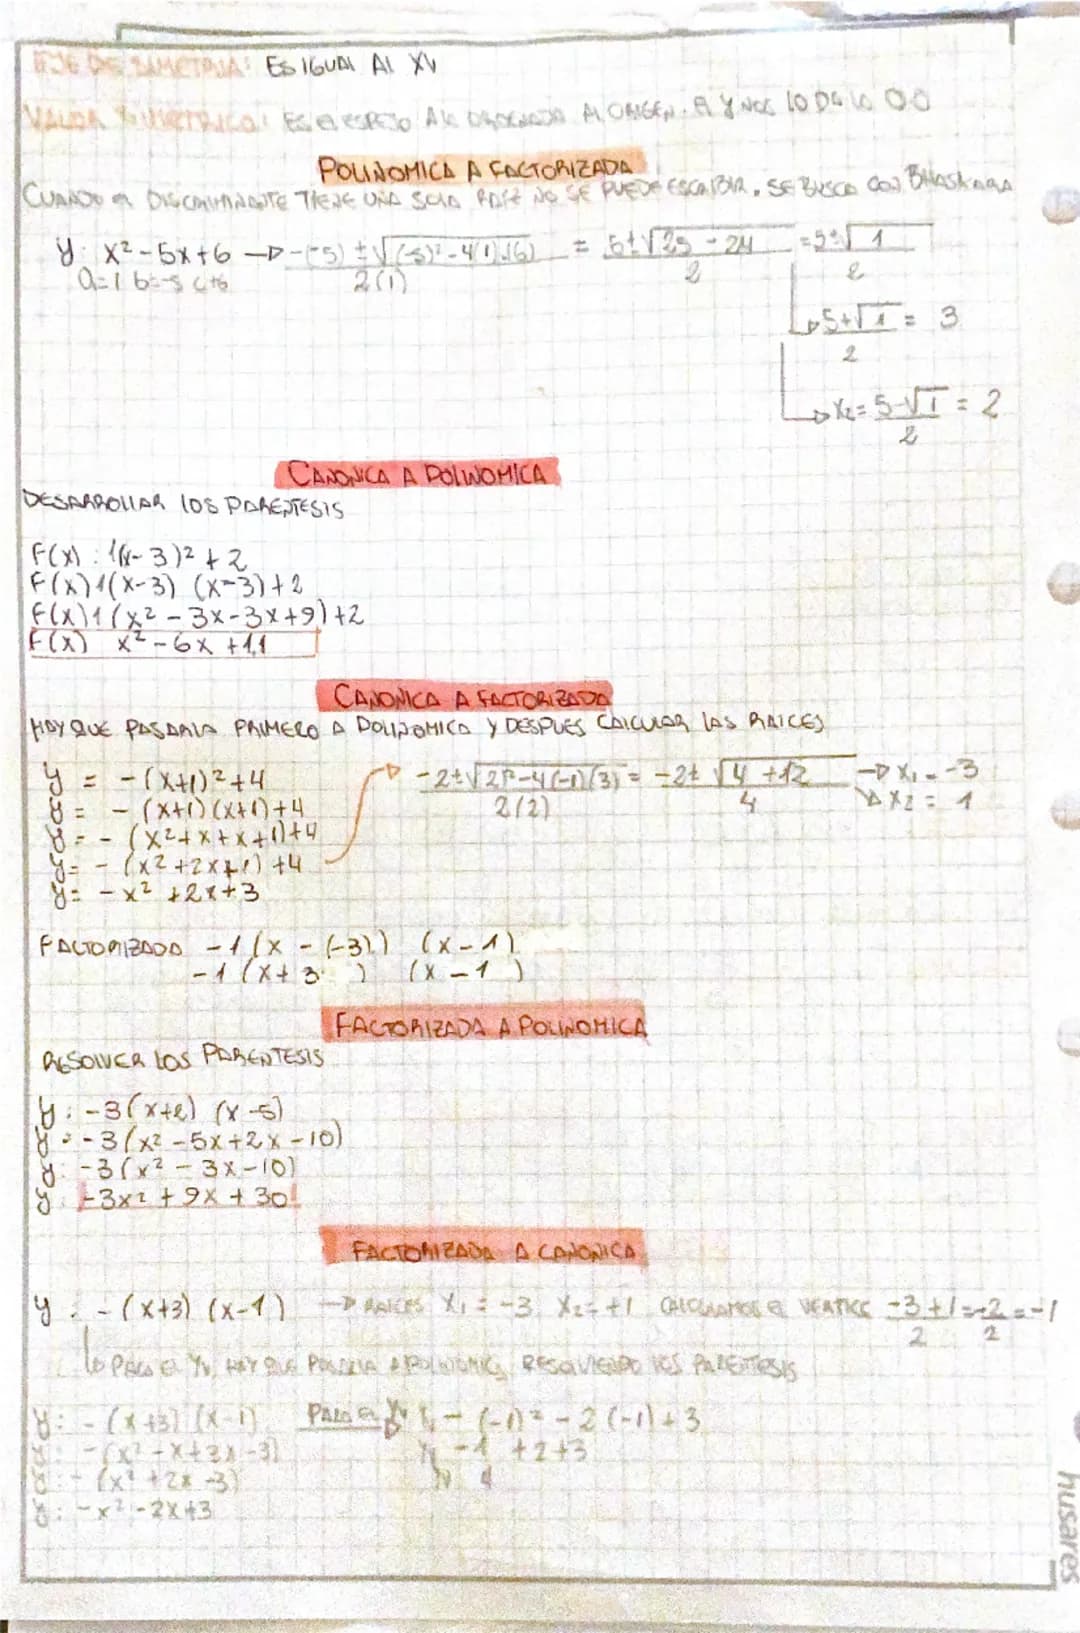 EJE DE SIMETRIA: ES IGUAL AL XV
VALOR SIMETRICO: ES EL ESPEJO A LA ORDENADA AL ORIGEN. EL Y NOS LO DA LA O.O
POLINOMICA A FACTORIZADA
CUANDO EL DISCRIMINANTE TIENE UNA SOLA RAIZ NO SE PUEDE ESCRIBIR, SE BUSCA CON BHASKARA
y: x² - 5x + 6 → -(-5) ± √(-5)² - 4(1).(6) / 2(1) = 5 ± √25 - 24 / 2 = 5 ± √1 / 2
a=1 b=-5 c=6
5+√1 / 2 = 3
x₂ = 5-√1 / 2 = 2
CANONICA A POLINOMICA
DESARROLLAR LOS PARENTESIS
F(x): 1(x-3)² + 2
F(x) 1(x-3) (x-3)+2
F(x) 1(x² - 3x - 3x + 9) + 2
F(x) x² - 6x + 11
CANONICA A FACTORIZADA
HAY QUE PASARLA PRIMERO A POLINOMICA Y DESPUES CALCULAR LAS RAICES
y = - (x+1)² + 4
y = - (x+1) (x+1) + 4
y = - (x² + x + x + 1) + 4
y = - (x² + 2x + 1) + 4
y = - x² + 2x + 3
-2 ± √2² - 4(-1)(3) / 2(2) = -2 ± √4 + 12 / 4 → x₁ = -3
x₂ = 1
FACTORIZADA -1 (x - (-3)) (x - 1)
-1 (x + 3 ) (x - 1 )
FACTORIZADA A POLINOMICA
RESOLVER LOS PARENTESIS
y: -3(x+2) (x-5)
y: -3(x² - 5x + 2x - 10)
y: -3(x² - 3x - 10)
y: -3x² + 9x + 30
FACTORIZADA A CANONICA
y: - (x+3) (x-1) → RAICES X₁ = -3 X₂ = +1 CALCULAMOS EL VERTICE -3+1 / 2 = -2 / 2 = -1
PARA EL YV, HAY QUE PASARLA A POLINOMICA, RESOLVIENDO LOS PARENTESIS
y: - (x+3) (x-1) PARA EL YV → - (-1)² - 2(-1) + 3
y: - (x² - x + 3x - 3) -1 + 2 + 3
y: - (x² + 2x - 3) YV 4
y: - x² - 2x + 3
husares